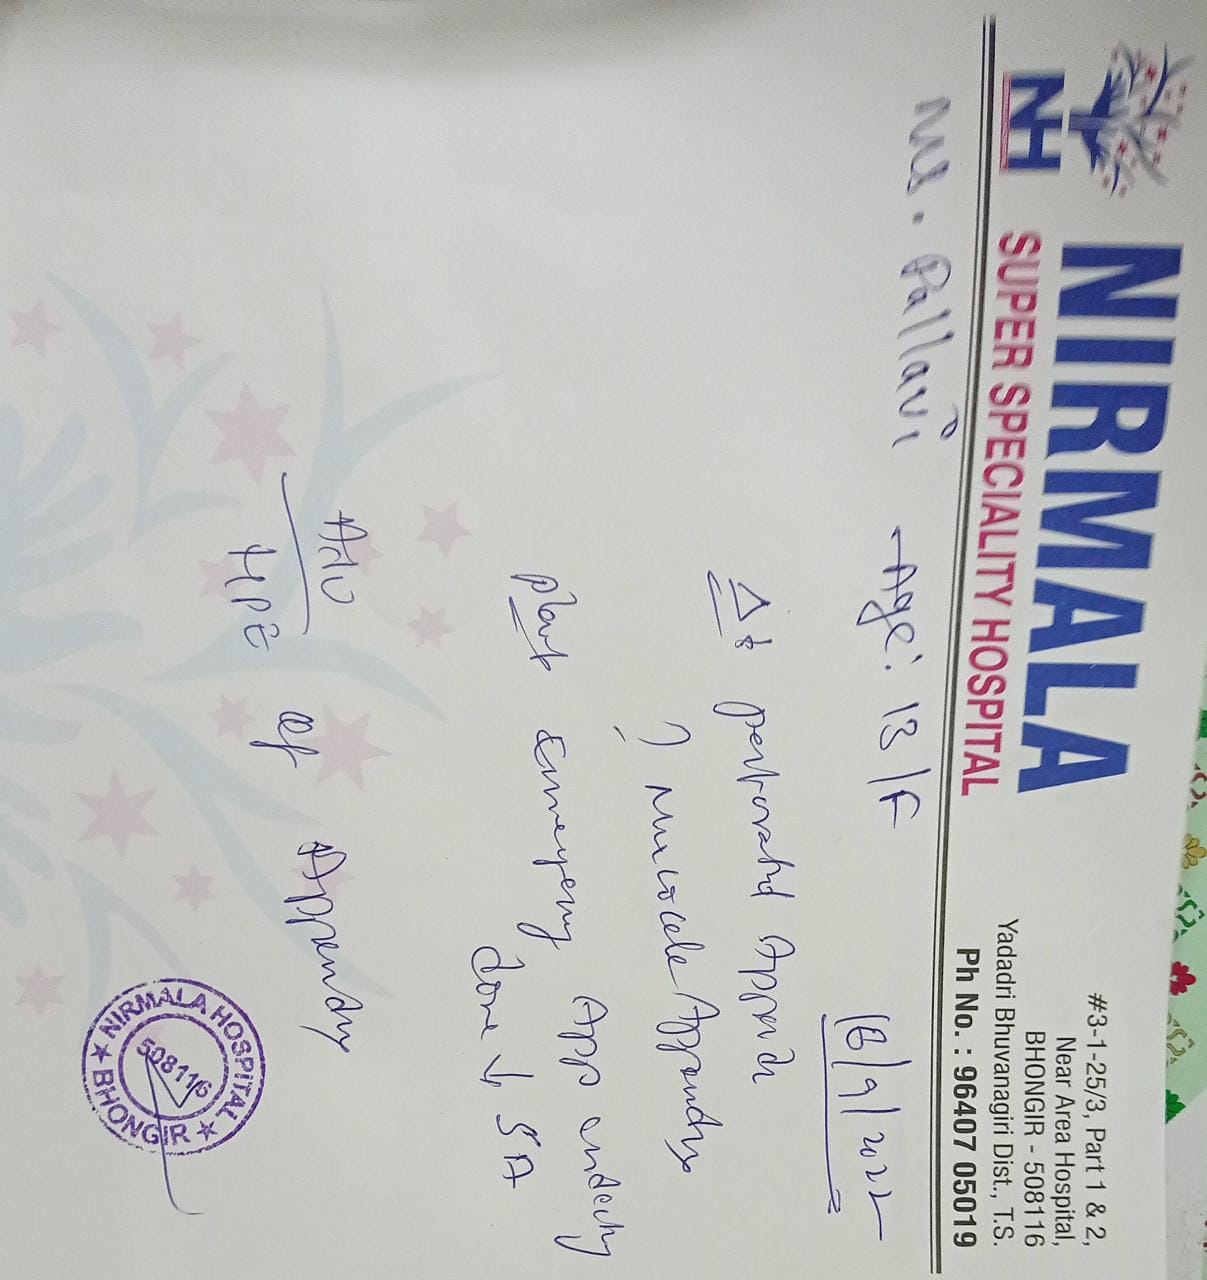 NH
NIRMALA
SUPER SPECIALITY HOSPITAL
#3-1-25/3, Part 1 & 2,
Near Area Hospital,
BHONGIR - 508116
Yadadri Bhuvanagiri Dist., T.S.
Ph No. : 96407 05019
Ms. Pallavi -Age: 13/F
/9/2022
Δ: perforated Append
? Mucocele Appendix
Emergency App endecty
done ↓ SA
Adv
HPE of Appendix
NIRMALA HOSPITAL
508116
★ BHONGIR ★